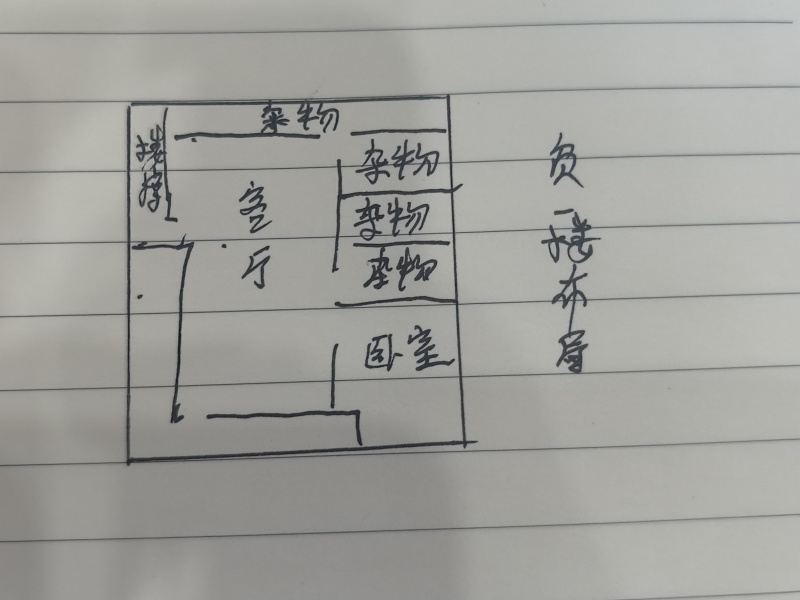 杂物
楼梯
杂物
客厅
杂物
杂物
卧室
负一楼布局